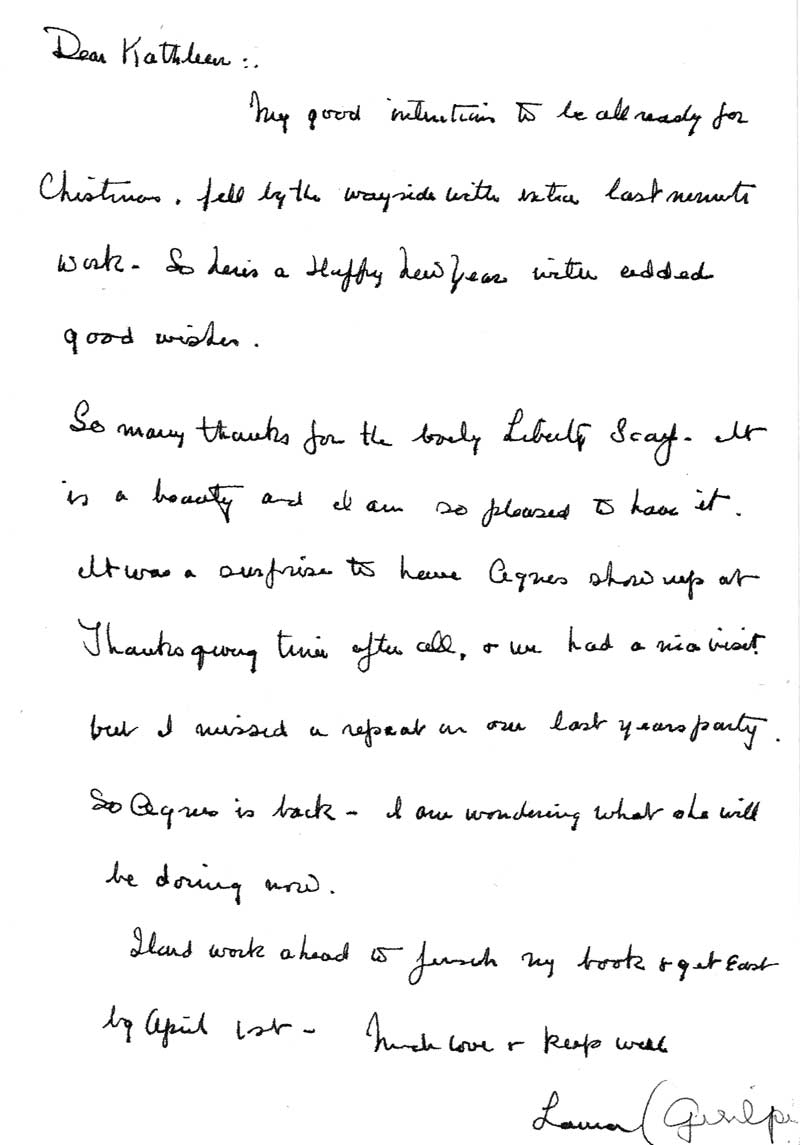 Dear Kathleen :.
My good intentions to be all ready for
Christmas, fell by the wayside with extra last minute
work - So here's a Happy New Year with added
good wishes.
So many thanks for the lovely Liberty Scarf - It
is a beauty and I am so pleased to have it.
It was a surprise to have Agnes show up at
Thanksgiving time after all, & we had a nice visit
but I missed a repeat on our last years party.
So Agnes is back - I am wondering what she will
be doing now.
Hard work ahead to finish my book & get East
by April 1st - Much love & keep well
Laura (